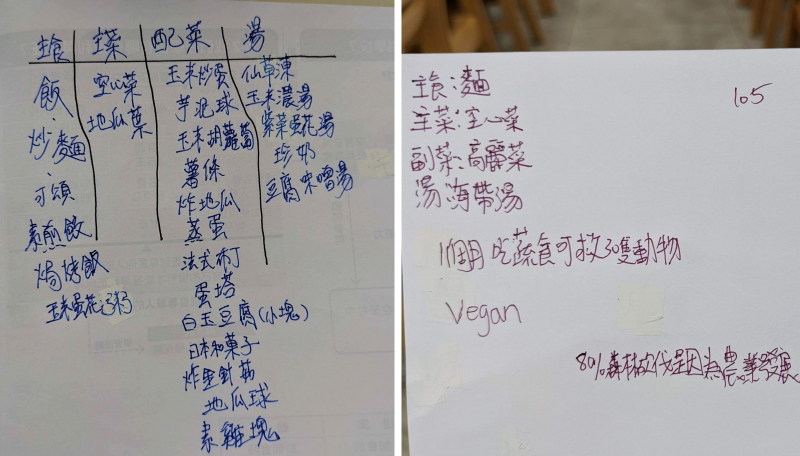 主食 主菜 配菜 湯
飯
炒麵
可頌
素煎餃
焗烤飯
玉米蛋花粥
空心菜
地瓜葉
玉米炒蛋
芋泥球
玉米胡蘿蔔
薯條
炸地瓜
蒸蛋
法式布丁
蛋塔
白玉豆腐(小塊)
日本和菓子
炸金針菇
地瓜球
素雞塊
仙草凍
玉米濃湯
紫菜蛋花湯
珍奶
豆腐味噌湯
105
主食:麵
主菜:空心菜
副菜:高麗菜
湯:海帶湯
1個月吃蔬食可救30隻動物
Vegan
80%森林砍伐是因為農業發展